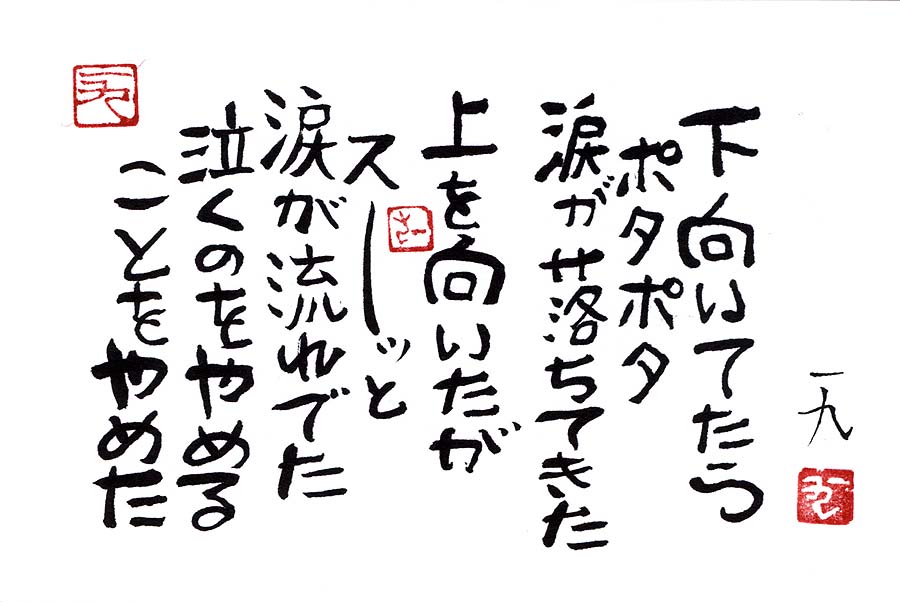 一九
下向いてたら
ポタポタ
涙が落ちてきた
上を向いたが
スーッと
涙が流れでた
泣くのをやめる
ことをやめた